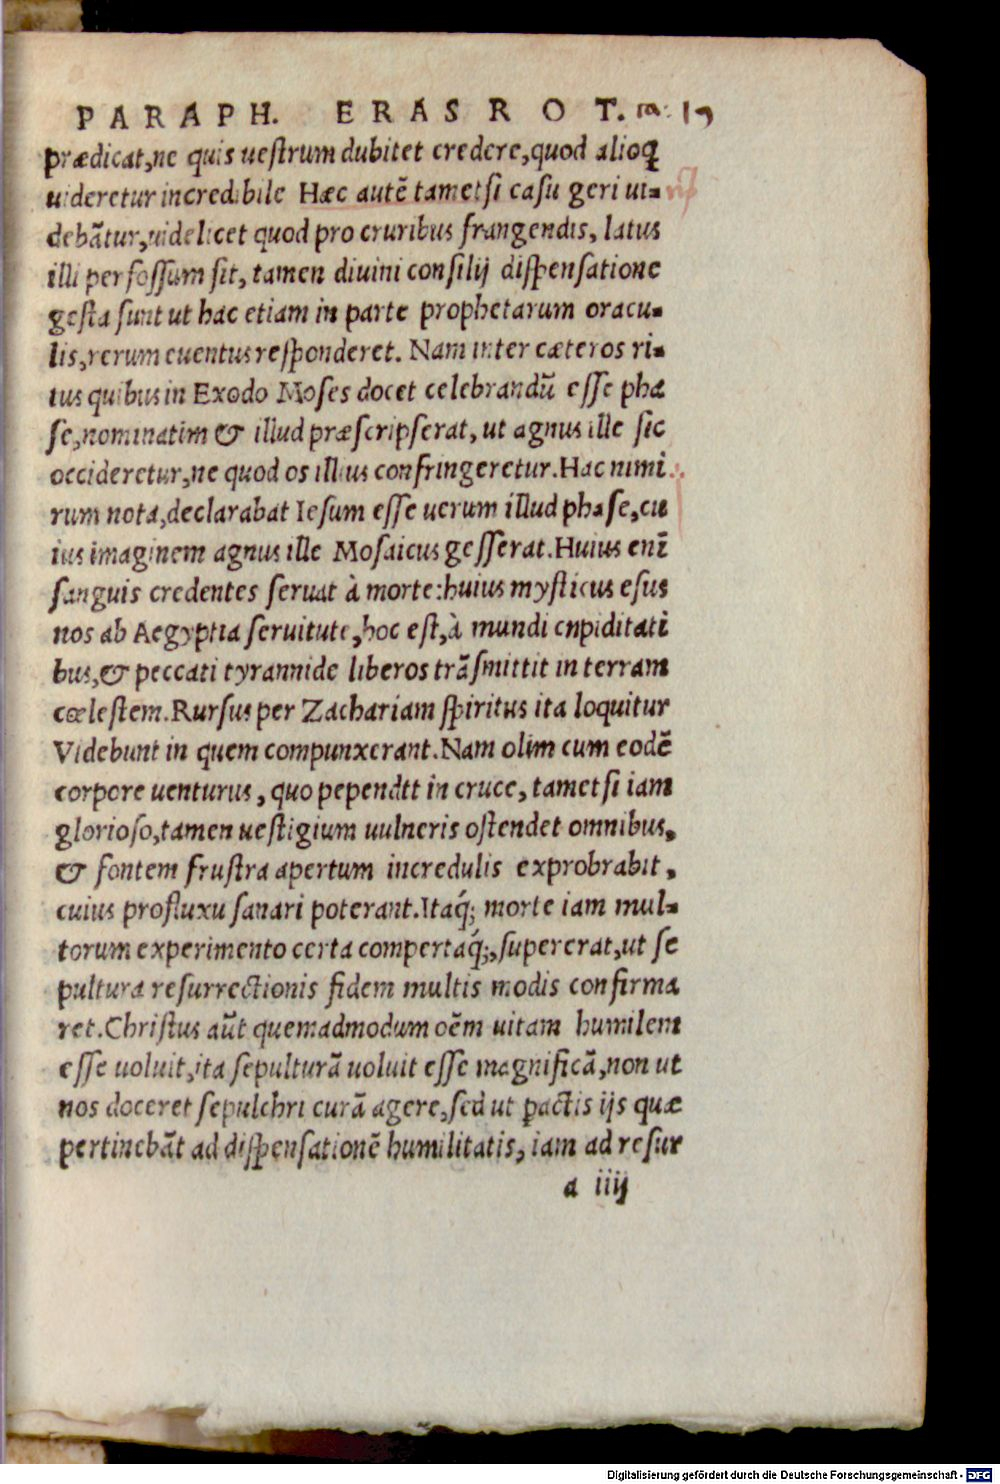 PARAPH. ERAS ROT. 
prædicat,ne quis ueſtrum dubitet credere,quod alioꝗ
uideretur incredibile Hæc autē tametſi caſu geri ui-
debātur,uidelicet quod pro cruribus frangendis, latus
illi perfoſſum ſit, tamen diuini conſilij diſpenſatione
geſta ſunt ut hac etiam in parte prophetarum oracu-
lis,rerum euentus reſponderet. Nam inter cæteros ri-
tus quibus in Exodo Moſes docet celebrandū eſſe pha
ſe,nominatim & illud præſcripſerat, ut agnus ille ſic
occideretur,ne quod os illius confringeretur.Hac nimi
rum nota,declarabat Ieſum eſſe uerum illud phaſe,cu
ius imaginem agnus ille Moſaicus geſſerat.Huius enī
ſanguis credentes ſeruat à morte:huius myſticus eſus
nos ab Aegyptia ſeruitute,hoc eſt,à mundi cnpiditati
bus,& peccati tyrannide liberos trāſmittit in terram
cœleſtem.Rurſus per Zachariam ſpiritus ita loquitur
Videbunt in quem compunxerant.Nam olim cum eodē
corpore uenturus, quo pependtt in cruce, tametſi iam
glorioſo,tamen ueſtigium uulneris oſtendet omnibus,
& fontem fruſtra apertum incredulis exprobrabit,
cuius profluxu ſanari poterant.Itaq́; morte iam mul-
torum experimento certa compertaq́;,ſupererat,ut ſe
pultura reſurrectionis fidem multis modis confirma
ret.Chriſtus aūt quemadmodum oēm uitam humilem
eſſe uoluit,ita ſepulturā uoluit eſſe magnificā,non ut
nos doceret ſepulchri curā agere,ſed ut ꝑactis ijs quæ
pertinebāt ad diſpenſationē humilitatis, iam ad reſur
a iiij
Digitalisierung gefördert durch die Deutsche Forschungsgemeinschaft - DFG